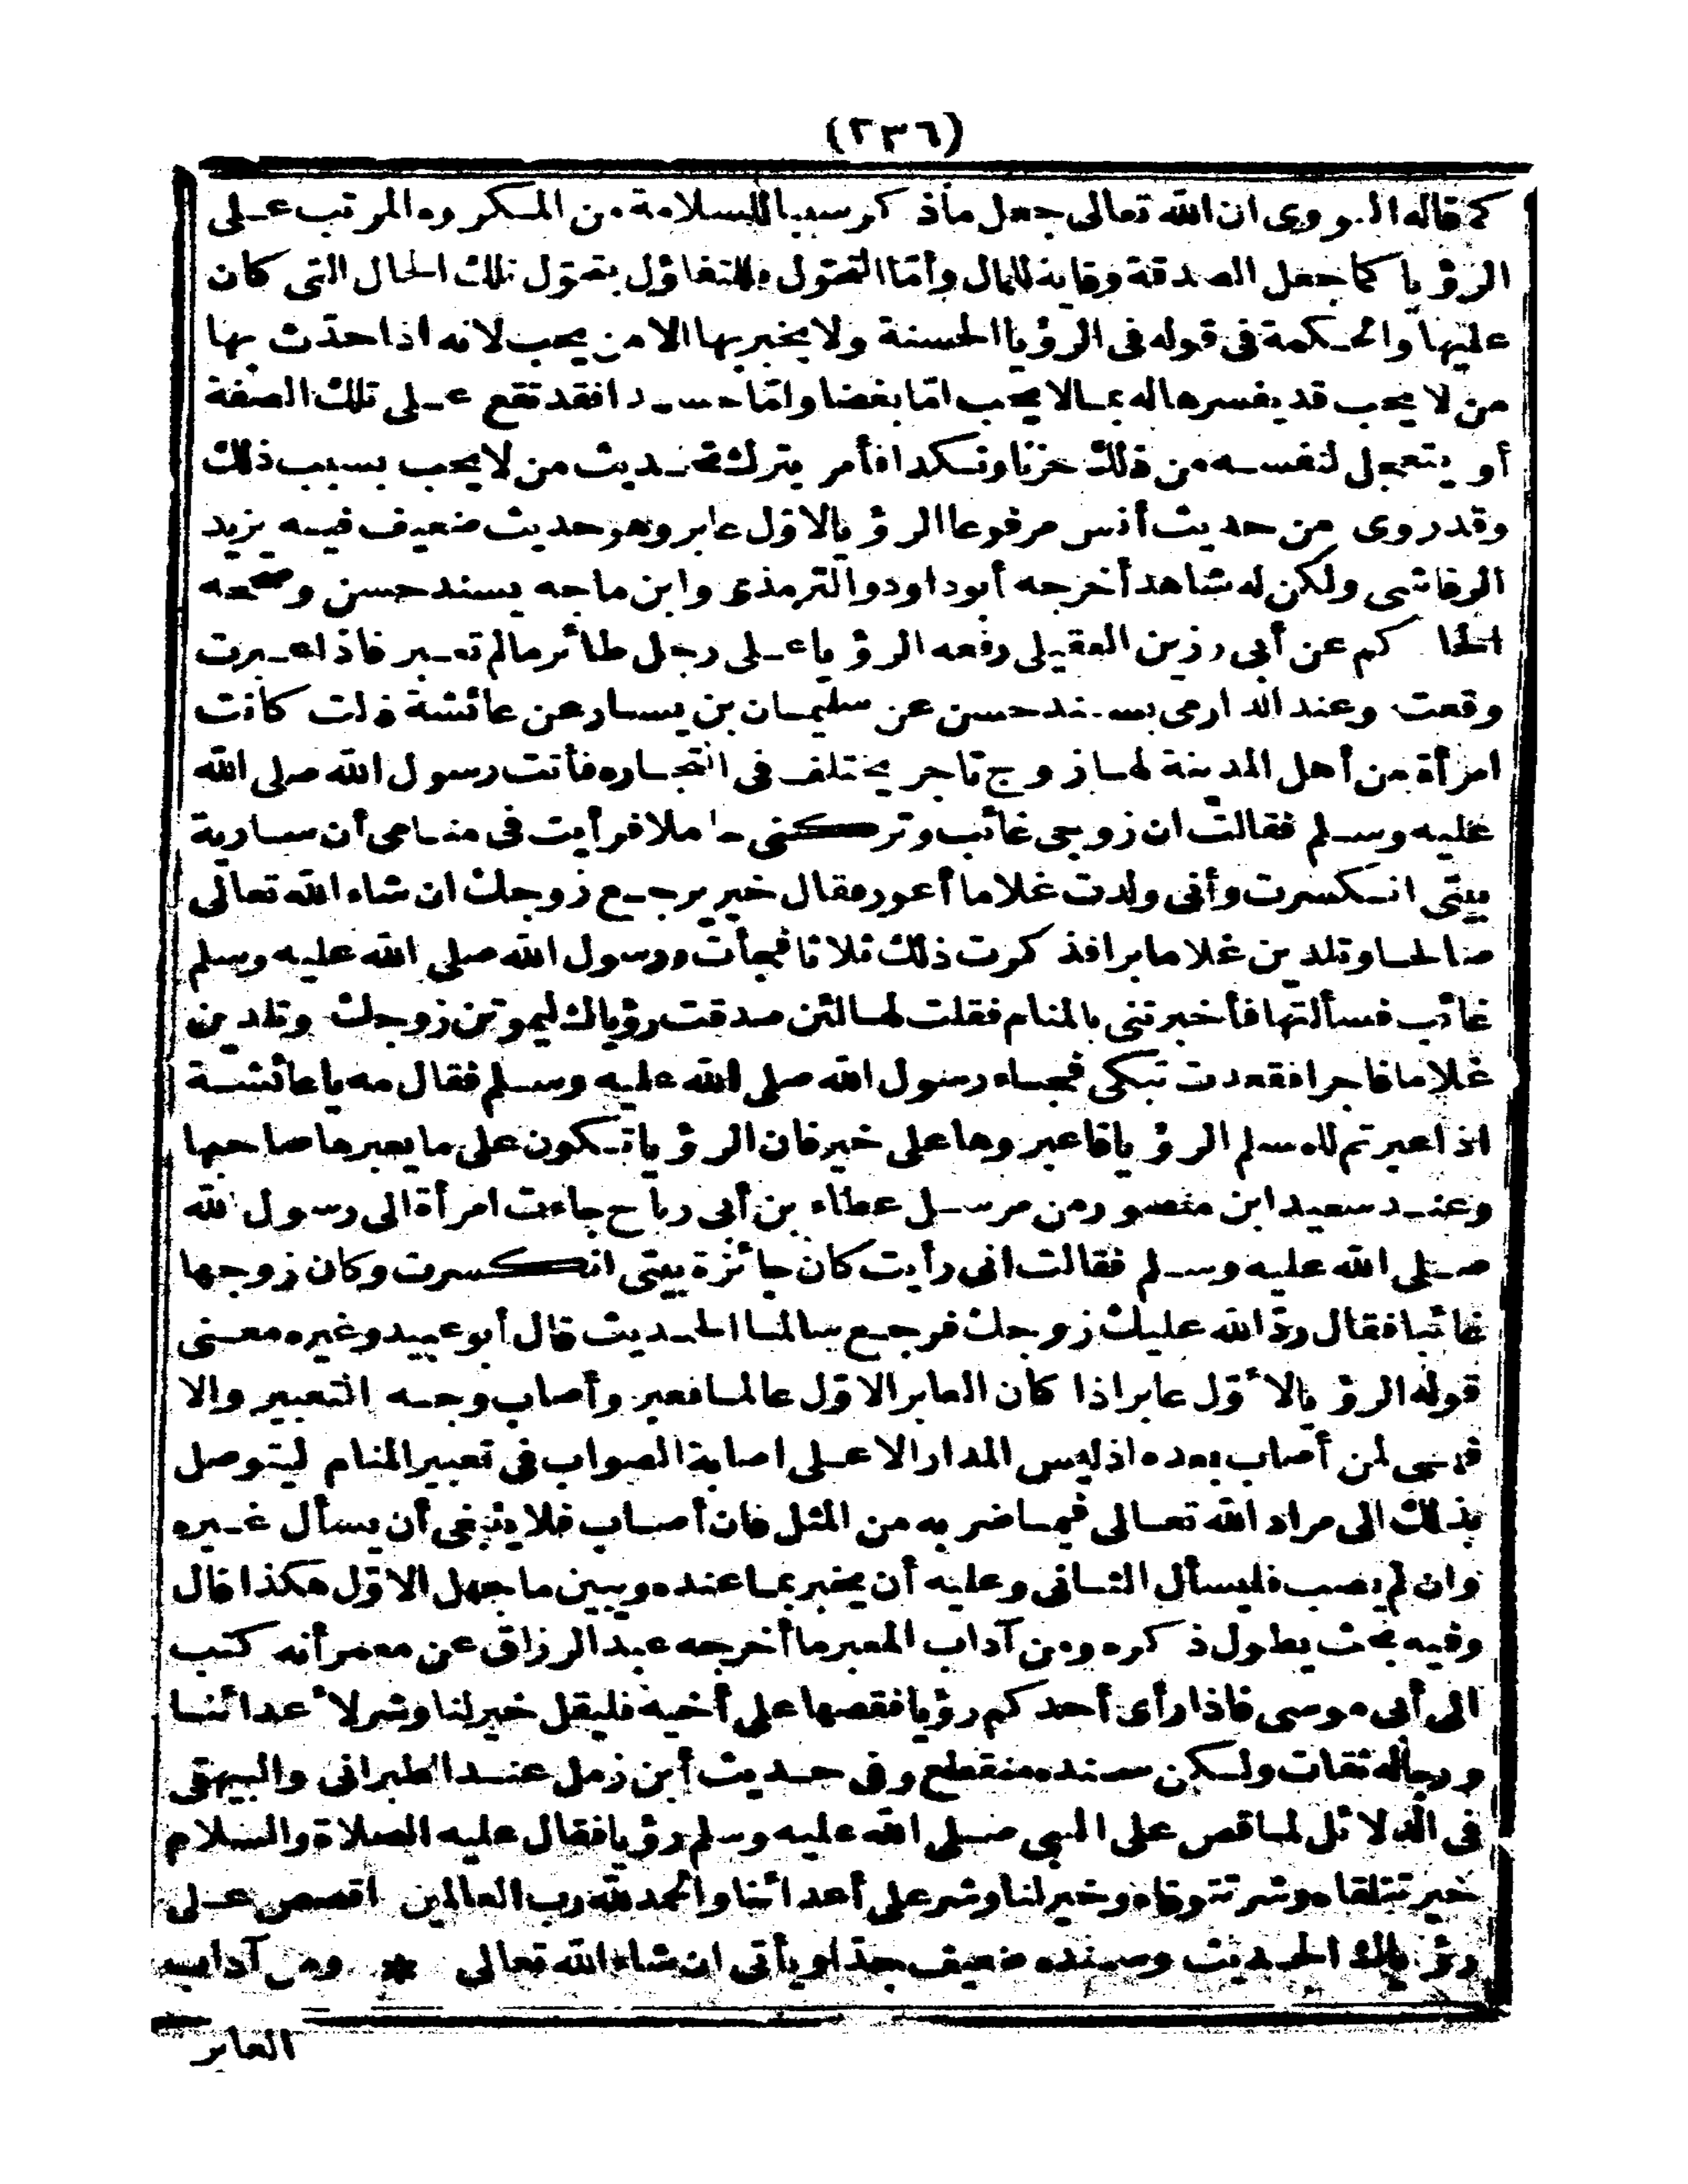 (٢٣٦)
كما قاله النووى ان الله تعالى جعل ما ذكر سببا للسلامة من المكروه المرتب على
الرؤيا كما جعل الصدقة وقاية للمال وأمّا التحوّل فللتفاؤل بتحوّل تلك الحال التى كان
عليها والحكمة فى قوله فى الرؤيا الحسنة ولا يخبر بها الا من يحب لانه اذا حدّث بها
من لا يحب قد يفسرها له بما لا يحب امّا بغضا وامّا حسدا فقد تقع على تلك الصفة
أو يتعجل لنفسه من ذلك حزنا ونكدا فأمر بترك تحديث من لا يحب بسبب ذلك
وقد روى من حديث أنس مرفوعا الرؤيا لاوّل عابر وهو حديث ضعيف فيه يزيد
الرقاشى ولكن له شاهد أخرجه أبو داود والترمذى وابن ماجه بسند حسن وصححه
الحاكم عن أبى رزين العقيلى رفعه الرؤيا على رجل طائر ما لم تعبر فاذا عبرت
وقعت وعند الدارمى بسند حسن عن سليمان بن يسار عن عائشة قالت كانت
امرأة من أهل المدينة لها زوج تاجر يختلف فى التجارة فأتت رسول الله صلى الله
عليه وسلم فقالت ان زوجى غائب وتركنى حاملا فرأيت فى منامى أن سارية
بيتى انكسرت وأنى ولدت غلاما أعور فقال خير يرجع زوجك ان شاء الله تعالى
صالحا وتلدين غلاما برا فذكرت ذلك ثلاثا فجأت ورسول الله صلى الله عليه وسلم
غائب فسألتها فأخبرتنى بالمنام فقلت لها لئن صدقت رؤياك ليموتن زوجك وتلدين
غلاما فاجرا فقعدت تبكى فجاء رسول الله صلى الله عليه وسلم فقال مه يا عائشة
اذا عبرتم للمسلم الرؤيا فاعبروها على خير فان الرؤيا تكون على ما يعبرها صاحبها
وعند سعيد ابن منصور من مرسل عطاء بن أبى رباح جاءت امرأة الى رسول الله
صلى الله عليه وسلم فقالت انى رأيت كان جائزة بيتى انكسرت وكان زوجها
غائبا فقال ردّ الله عليك زوجك فرجع سالما الحديث قال أبو عبيد وغيره معنى
قوله الرؤيا لأوّل عابر اذا كان العابر الاوّل عالما فعبر وأصاب وجه التعبير والا
فهى لمن أصاب بعده اذ ليس المدار الا على اصابة الصواب فى تعبير المنام ليتوصل
بذلك الى مراد الله تعالى فيما ضربه من المثل فان أصاب فلا ينبغى أن يسأل غيره
وان لم يصب فليسأل الثانى وعليه أن يخبر بما عنده ويبين ما جهل الاوّل هكذا قال
وفيه بحث يطول ذكره ومن آداب المعبر ما أخرجه عبد الرزاق عن معمر أنه كتب
الى أبى موسى فاذا رأى أحدكم رؤيا فقصها على أخيه فليقل خير لنا وشر لأعدائنا
ورجاله ثقات ولكن سنده منقطع وفى حديث أبن زمل عند الطبرانى والبيهقى
فى الدلائل لما قص على النبى صلى الله عليه وسلم رؤيا فقال عليه الصلاة والسلام
خير تتلقاه وشر تتوقاه وخير لنا وشر على أعدائنا والحمد لله رب العالمين اقصص على
رؤياك الحديث وسنده ضعيف جدّا ويأتى ان شاء الله تعالى * ومن آداب
العابر